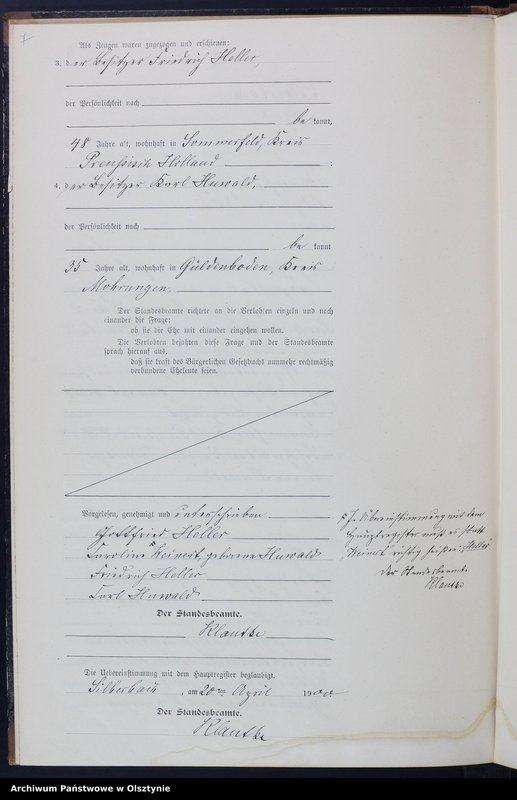 7
Als Zeugen waren zugezogen und erschienen:
3. der Besitzer Friedrich Heller,
der Persönlichkeit nach
be kannt,
48 Jahre alt, wohnhaft in Sommerfeld, Kreis
Preußisch Holland ;
4. der Besitzer Karl Huwald,
der Persönlichkeit nach
be kannt
35 Jahre alt, wohnhaft in Güldenboden, Kreis
Mohrungen,
Der Standesbeamte richtete an die Verlobten einzeln und nach
einander die Frage:
ob sie die Ehe mit einander eingehen wollen.
Die Verlobten bejahten diese Frage und der Standesbeamte
sprach hierauf aus,
daß sie kraft des Bürgerlichen Gesetzbuchs nunmehr rechtmäßig
verbundene Eheleute seien.
Vorgelesen, genehmigt und unterschrieben
Gottfried Heller
Caroline geborene Huwald
Friedrich Heller
Carl Huwald
Der Standesbeamte.
Klautke
Die Uebereinstimmung mit dem Hauptregister beglaubigt.
Silberbach, am 20ten April 1900
Der Standesbeamte.
Klautke
Übereinstimmung mit dem
Hauptregister muß es statt
richtig heißen: "Heller"
Der Standesbeamte
Klautke
Archiwum Państwowe w Olsztynie